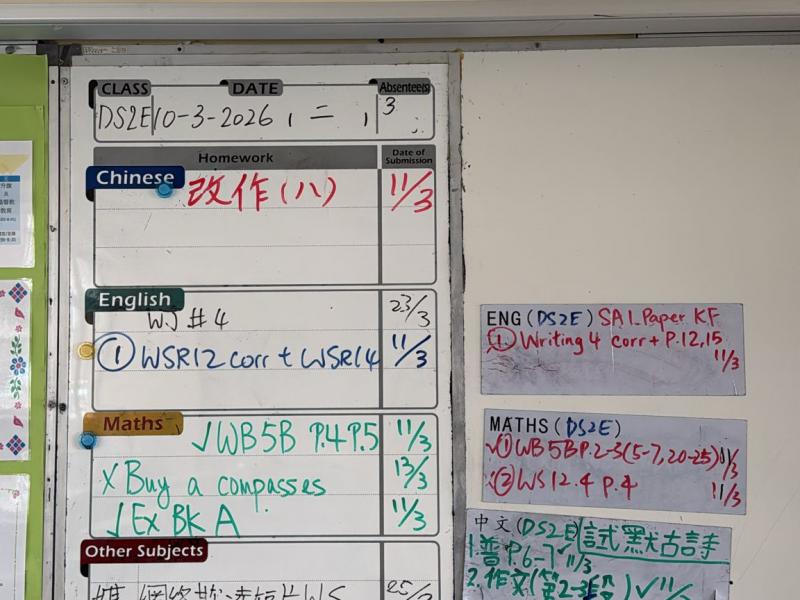 CLASS DATE Absentee(s)
DS2E 10-3-2026, 二, 3
Homework Date of Submission
Chinese
改作(八) 11/3
English
WS #4 23/3
① WSR12 corr + WSR14 11/3
Maths
√WB5B P.4 P.5 11/3
X Buy a compasses 13/3
√Ex BK A 11/3
Other Subjects
ENG (DS2E) SA1 Paper KF
① Writing 4 corr + P.12,15
11/3
MATHS (DS2E)
√① WB 5B P.2-3(5-7, 20-25) 11/3
② WS 12.4 P.4 11/3
中文(DS2E) 試默古詩
1.普 P.6-7 √ 11/3
2.作文(第2-3段) √ 11/